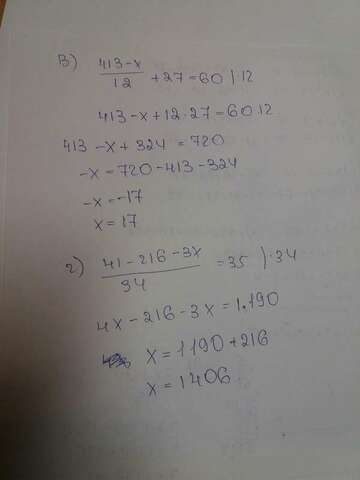 В) (413-x)/12 + 27 = 60 | · 12
413 - x + 12 · 27 = 60 · 12
413 - x + 324 = 720
-x = 720 - 413 - 324
-x = -17
x = 17
г) (41 - 216 - 3x)/34 = 35 | · 34
4x - 216 - 3x = 1.190
x = 1190 + 216
x = 1406